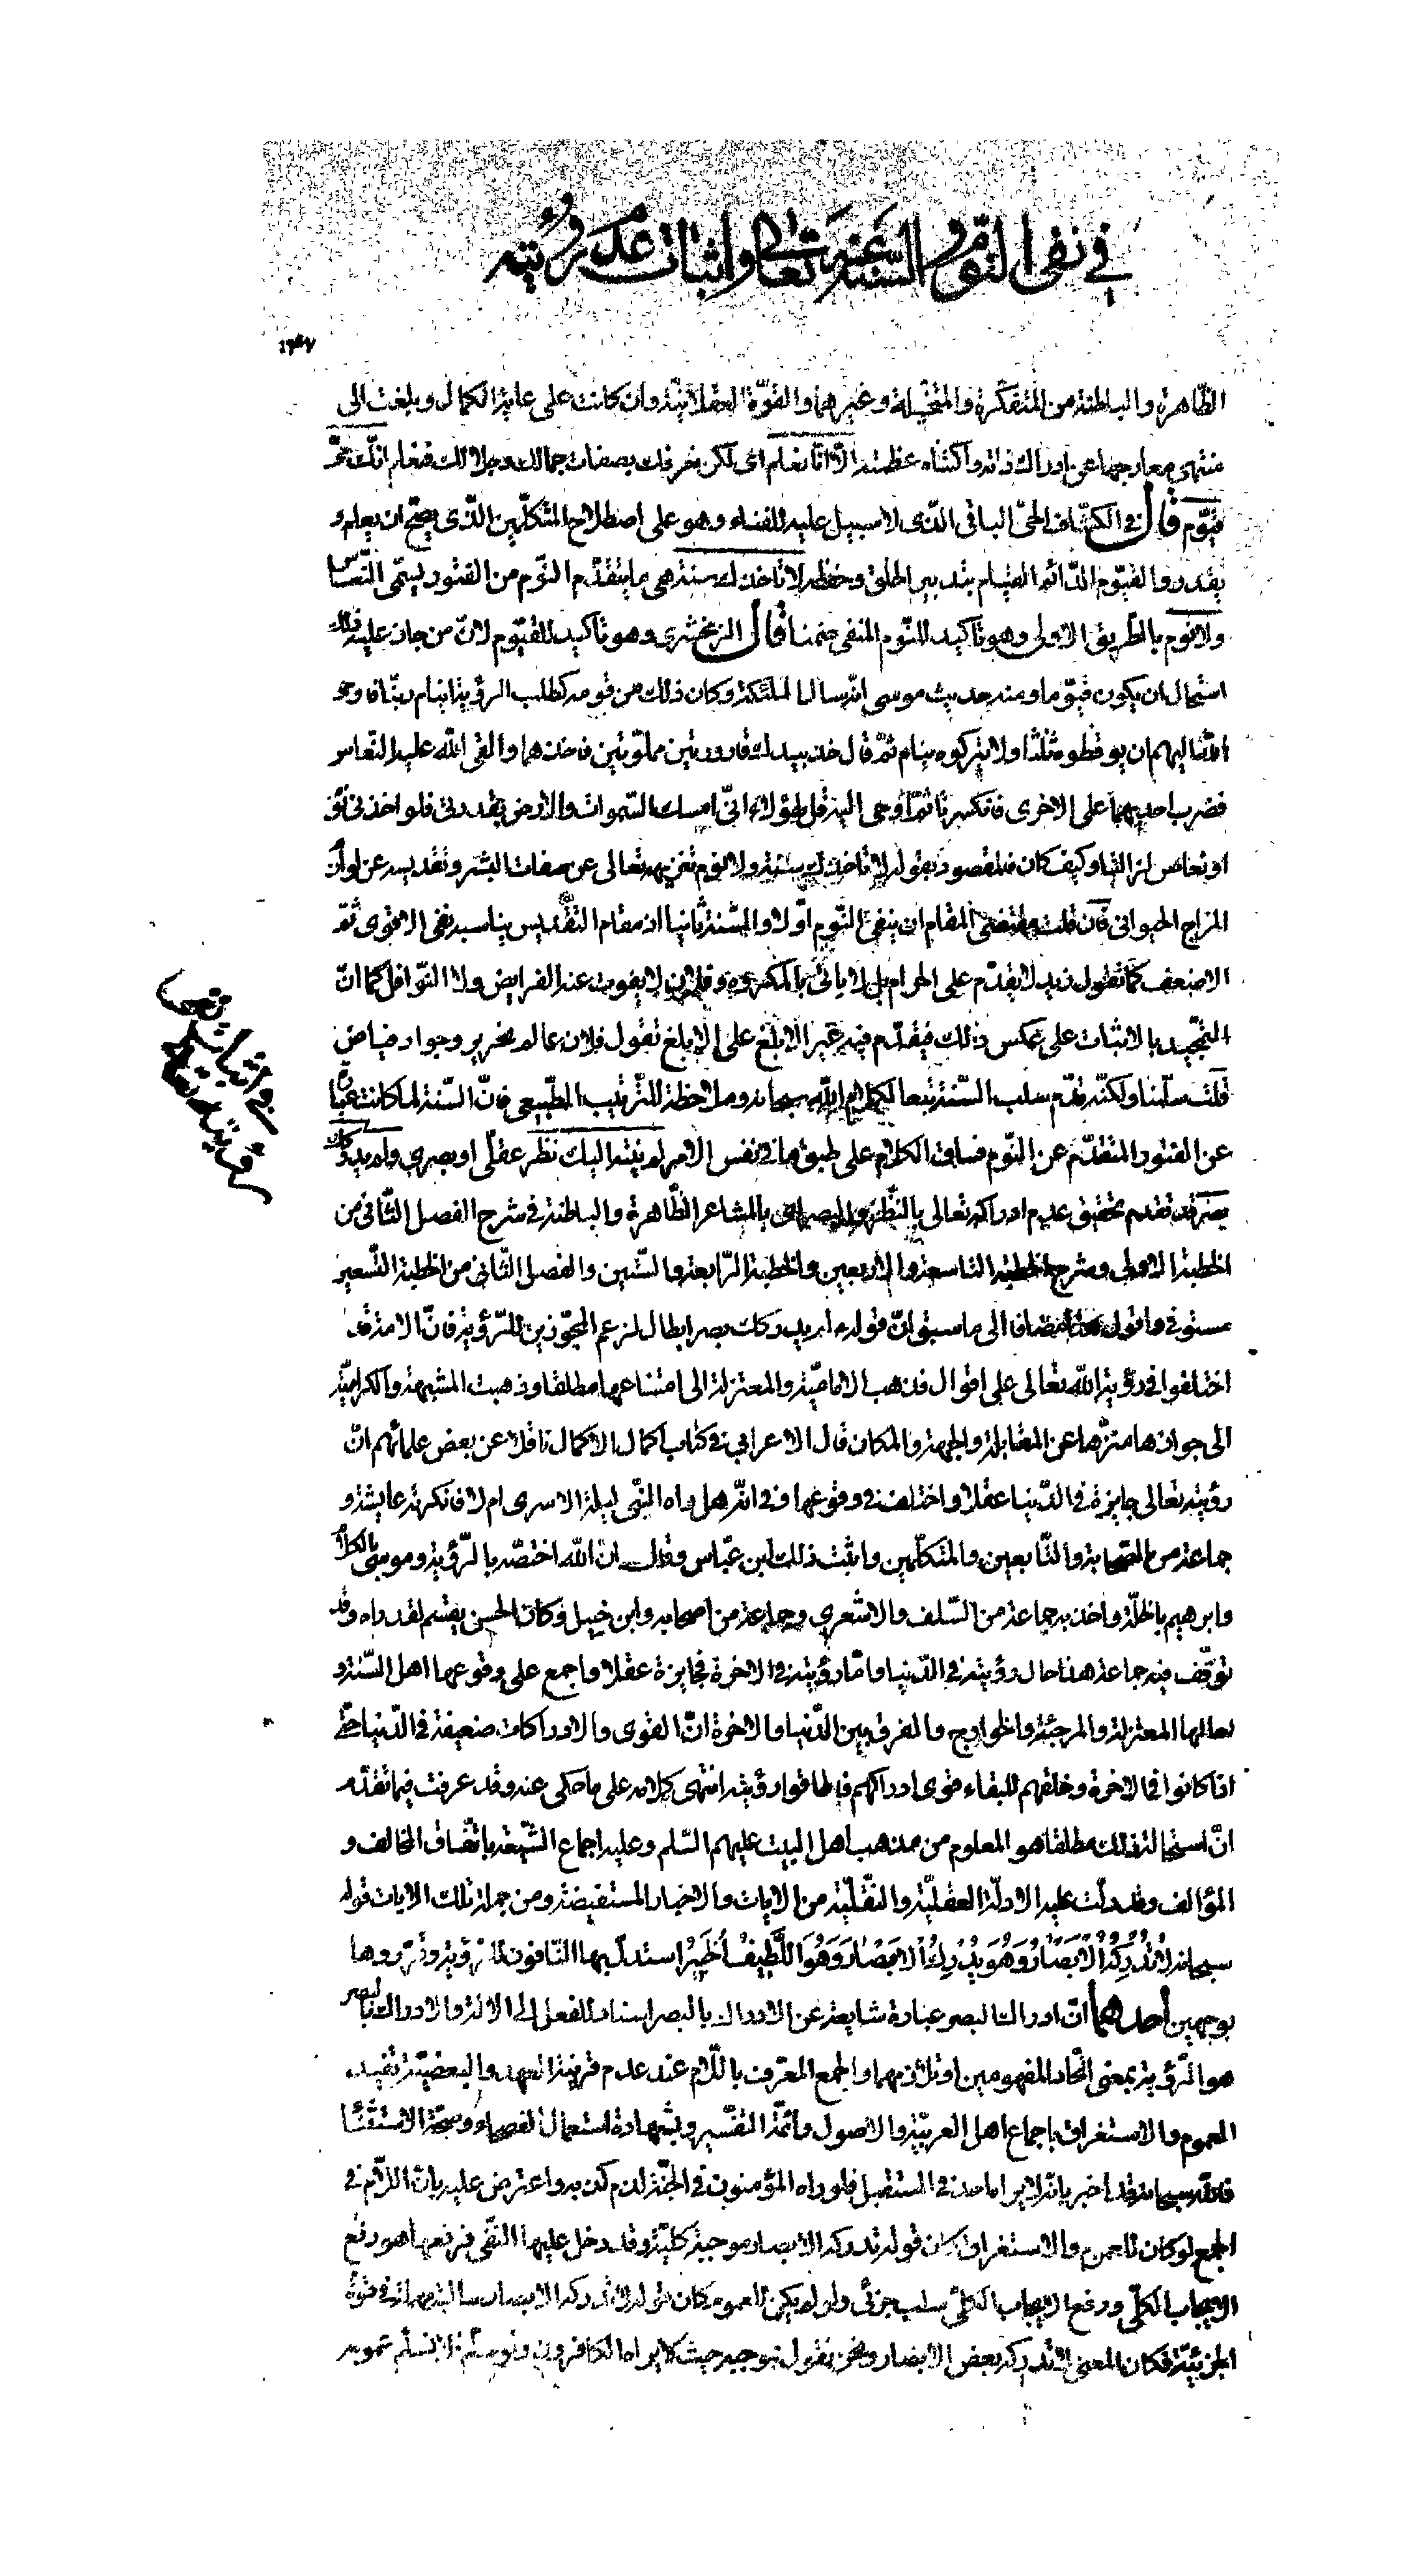 في نفي النوم والسنة عنه تعالى واثبات عدم رؤيته
الظّاهرة والباطنة من المتفكّرة والمتخيّلة وغيرهما والقوّة العقلانيّة وان كانت على غاية الكمال وبلغت الى
منتهى معارجها عن ادراك ذاته واكتناه عظمته الّا انّا نعلم اى لكن نعرفك بصفات جمالك وجلالك فنعلم انّك حىّ
قيّوم قال في الكشّاف الحىّ الباقى الّذى لا سبيل عليه للفناء وهو على اصطلاح المتكلّمين الّذى يصحّ ان يعلم و
يقدر والقيّوم الدّائم القيام بتدبير الخلق وحفظه لا تاخذك سنة هى ما يتقدّم النّوم من الفتور يسمّى النّعاس
ولا نوم بالطّريق الاولى وهو تاكيد للنّوم المنفى ضمنا قال الزمخشرى وهو تاكيد للقيّوم لانّ من جاز عليه ذلك
استحال ان يكون قيّوما ومنه حديث موسى انّه سال الملئكة وكان ذلك من قومه كطلب الرؤية اينام ربّنا فاوحى
اللّه اليهم ان يوقظوه ثلثا ولا يتركوه ينام ثمّ قال خذ بيدك قارورتين مملوّتين فاخذهما والقى اللّه عليه النّعاس
فضرب احديهما على الاخرى فانكسرتا ثمّ اوحى اليه قل لهؤلاء انّى امسك السّموات والارض بقدرتى فلو اخذنى نوم
او نعاس لزالتا وكيف كان فالمقصود بقوله لا تاخذك سنة ولا نوم تنزيهه تعالى عن صفات البشر وتقديسه عن لوازم
المزاج الحيوانى فان قلت مقتضى المقام ان ينفى النّوم اوّلا والسّنة ثانيا اذ مقام التّقديس يناسبه نفى الاقوى ثمّ
الاضعف كما تقول زيد لا يقدم على الحرام بل لا ياتى بالمكروه وفلان لا يفوت عنه الفرايض ولا النّوافل كما انّ
التمجيد بالاثبات على عكس ذلك فيقدّم فيه غير الابلغ على الابلغ تقول فلان عالم نحرير وجواد فياض
قلت سلّمنا ولكنّه قدّم سلب السّنة تبعا لكلام اللّه سبحانه وملاحظة للتّرتيب الطّبيعى فانّ السّنة لما كانت عبارة
عن الفتور المتقدّم عن النّوم فساق الكلام على طبق ما في نفس الامر لم ينته اليك نظر عقلّى او بصرى ولم يدركك
بصر قد تقدم تحقيق عدم ادراكه تعالى بالنّظر والبصر اى بالمشاعر الظّاهرة والباطنة في شرح الفصل الثّانى من
الخطبة الاولى وشرح الخطبة التاسعة والاربعين والخطبة الرّابعة والستّين والفصل الثّانى من الخطبة التّسعين
مستوفى واقول هنا مضافا الى ما سبق انّ قوله لم يدركك بصر ابطال لزعم المجوّزين للرّؤية فانّ الامّة قد
اختلفوا في رؤية اللّه تعالى على اقوال فذهب الاماميّة والمعتزلة الى امتناعها مطلقا وذهبت المشبهة والكراميّة
الى جوازها منزّها عن المقابلة والجهة والمكان قال الاعرابي في كتاب اكمال الاكمال ناقلا عن بعض علمائهم انّ
رؤيته تعالى جايزة في الدّنيا عقلا واختلف في وقوعها وفي انّه هل راه النّبى ليلة الاسرى ام لا فانكرته عايشة و
جماعة من الصّحابة والتّابعين والمتكلّمين واثبت ذلك ابن عبّاس وقال انّ اللّه اختصّه بالرّؤية وموسى بالكلام
وابرهيم بالخلّة واخذ به جماعة من السّلف والاشعرى وجماعة من اصحابه وابن حنبل وكان الحسن يقسم لقد راه وقد
توقّف فيه جماعة هذا حال رؤيته في الدّنيا وامّا رؤيته في الاخرة فجايزة عقلا واجمع على وقوعها اهل السّنة و
احالها المعتزلة والمرجئة والخوارج والفرق بين الدّنيا والاخرة انّ القوى والادراكات ضعيفة في الدّنيا حتّى
اذا كانوا في الاخرة وخلقهم للبقاء قوى ادراكهم فاطاقوا رؤيته انتهى كلامه على ما حكى عنه وقد عرفت فيما تقدّم
انّ استحالة ذلك مطلقا هو المعلوم من مذهب اهل البيت عليهم السّلم وعليه اجماع الشّيعة باتّفاق المخالف و
المؤالف وقد دلّت عليه الادلّة العقليّة والنّقليّة من الايات والاخبار المستفيضة ومن جملة تلك الايات قوله
سبحانه لا تُدْرِكُهُ الْابْصَارُ وَهُوَ يُدْرِكُ الْابْصَارَ وَهُوَ اللَّطِيفُ الْخَبِيرُ استدلّ بها النّافون للرّؤية وقرّروها
بوجهين احدهما انّ ادراك البصر عبارة شايعة عن الادراك بالبصر اسناد للفعل الى الالة والادراك بالبصر
هو الرّؤية بمعنى اتّحاد المفهومين او تلازمهما والجمع المعرّف باللّام عند عدم قرينة العهد والبعضيّة تفيد
العموم والاستغراق باجماع اهل العربيّة والاصول وائمّة التفسير وبشهادة استعمال الفصحاء وصحّة الاستثناء
فاللّه سبحانه قد اخبر بانّه لا يراه احد في المستقبل فلو راه المؤمنون في الجنّة لزم كذبه واعترض عليه بانّ اللّام في
الجمع لو كان للعموم والاستغراق كان قوله تدركه الابصار موجبة كليّة وقد دخل عليها النّفى فرفعها هو رفع
الايجاب الكلّى ورفع الايجاب الكلّى سلب جزئى ولو لم يكن للعموم كان قوله لا تدركه الابصار سالبة مهملة في قوّة
الجزئيّة فكان المعنى لا تدركه بعض الابصار ونحن نقول بموجبه حيث لا يراه الكافرون ولو سلّم لا نسلّم عمومه
في اثبات عدم
رؤيته تعالى